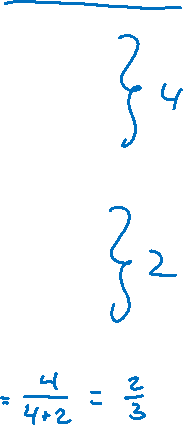 } 4
} 2
= 4/(4+2) = 2/3